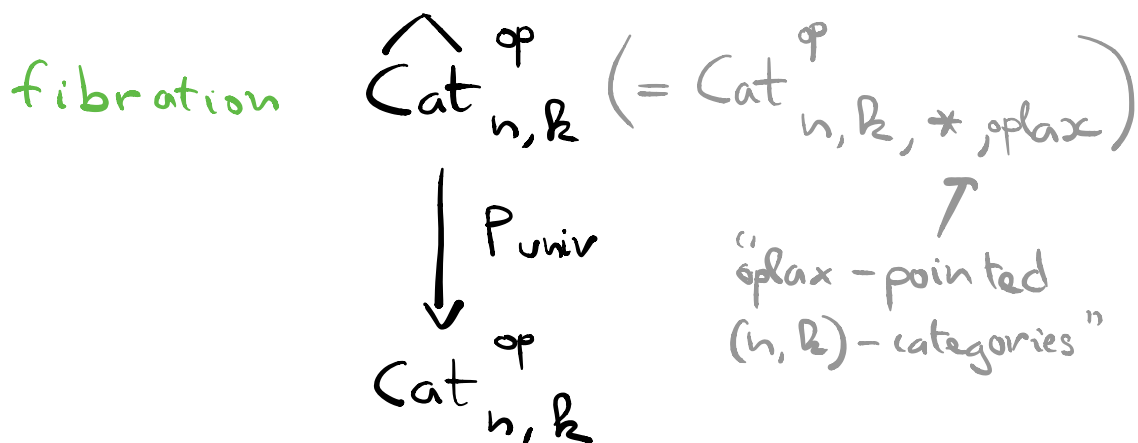 fibration Cat^op_{n,k} (= Cat^op_{n,k,*,oplax})
P univ
"oplax - pointed
(n,k) - categories"
Cat^op_{n,k}